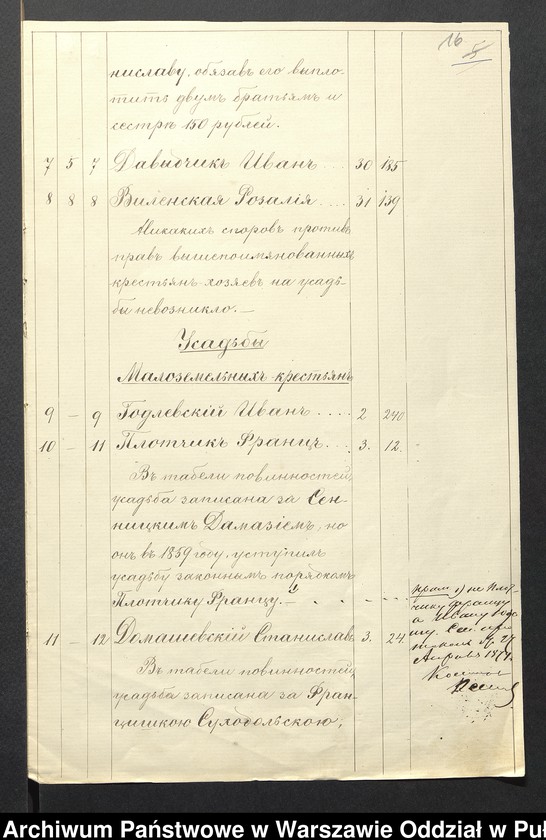 16
5
ниславу, обязавъ его выпло-
тить двумъ братьямъ и
сестрѣ 150 рублей.
7 5 7 Давидчикъ Иванъ ... 30 185
8 8 8 Виленская Розалія .... 31 139
Никакихъ споровъ противъ
правъ вышепоимянованныхъ
крестьян-хозяевъ на усадь-
бы невозникло. —
Усадьбы
Малоземельныхъ крестьянъ
9 – 9 Годлевскій Иванъ .... 2 240
10 – 11 Плотчикъ Францъ ... 3. 12.
Въ табели повинностей,
усадьба записана за Сен-
ницкимъ Дамазіемъ, но
онъ въ 1859 году, уступилъ
усадьбу законнымъ порядкомъ
Плотчику Францу. —
11 – 12 Домашевскій Станиславъ 3. 24.
Въ табели повинностей,
усадьба записана за Фран-
цишкою Суходольскою,
1) не Плот-
чику Францу
а Ивану
Апрѣля 1871.
Archiwum Państwowe w Warszawie Oddział w Pu